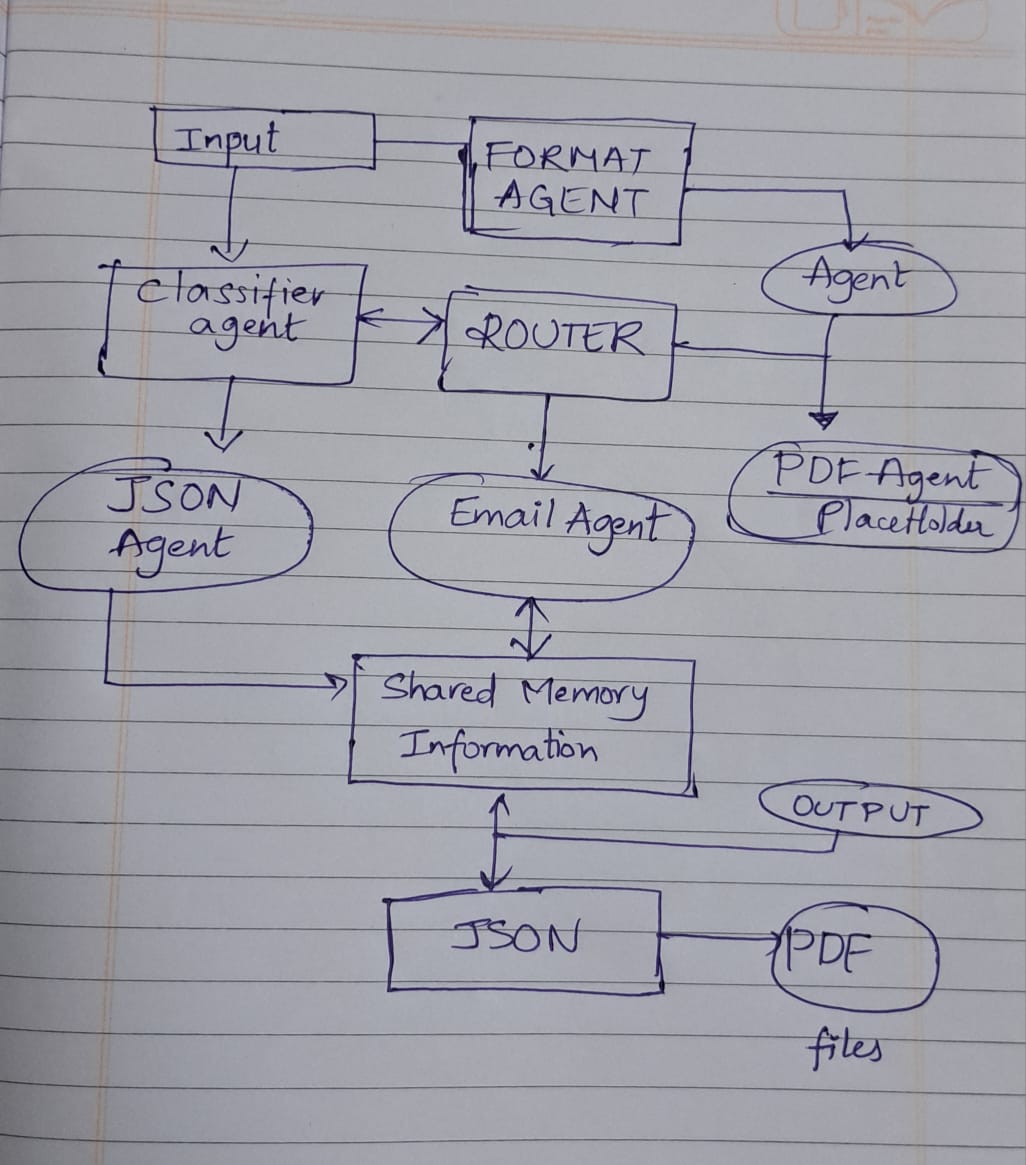 Input
FORMAT
AGENT
Agent
Classifier
agent
ROUTER
JSON
Agent
Email Agent
PDF Agent
PlaceHolder
Shared Memory
Information
OUTPUT
JSON
PDF
files